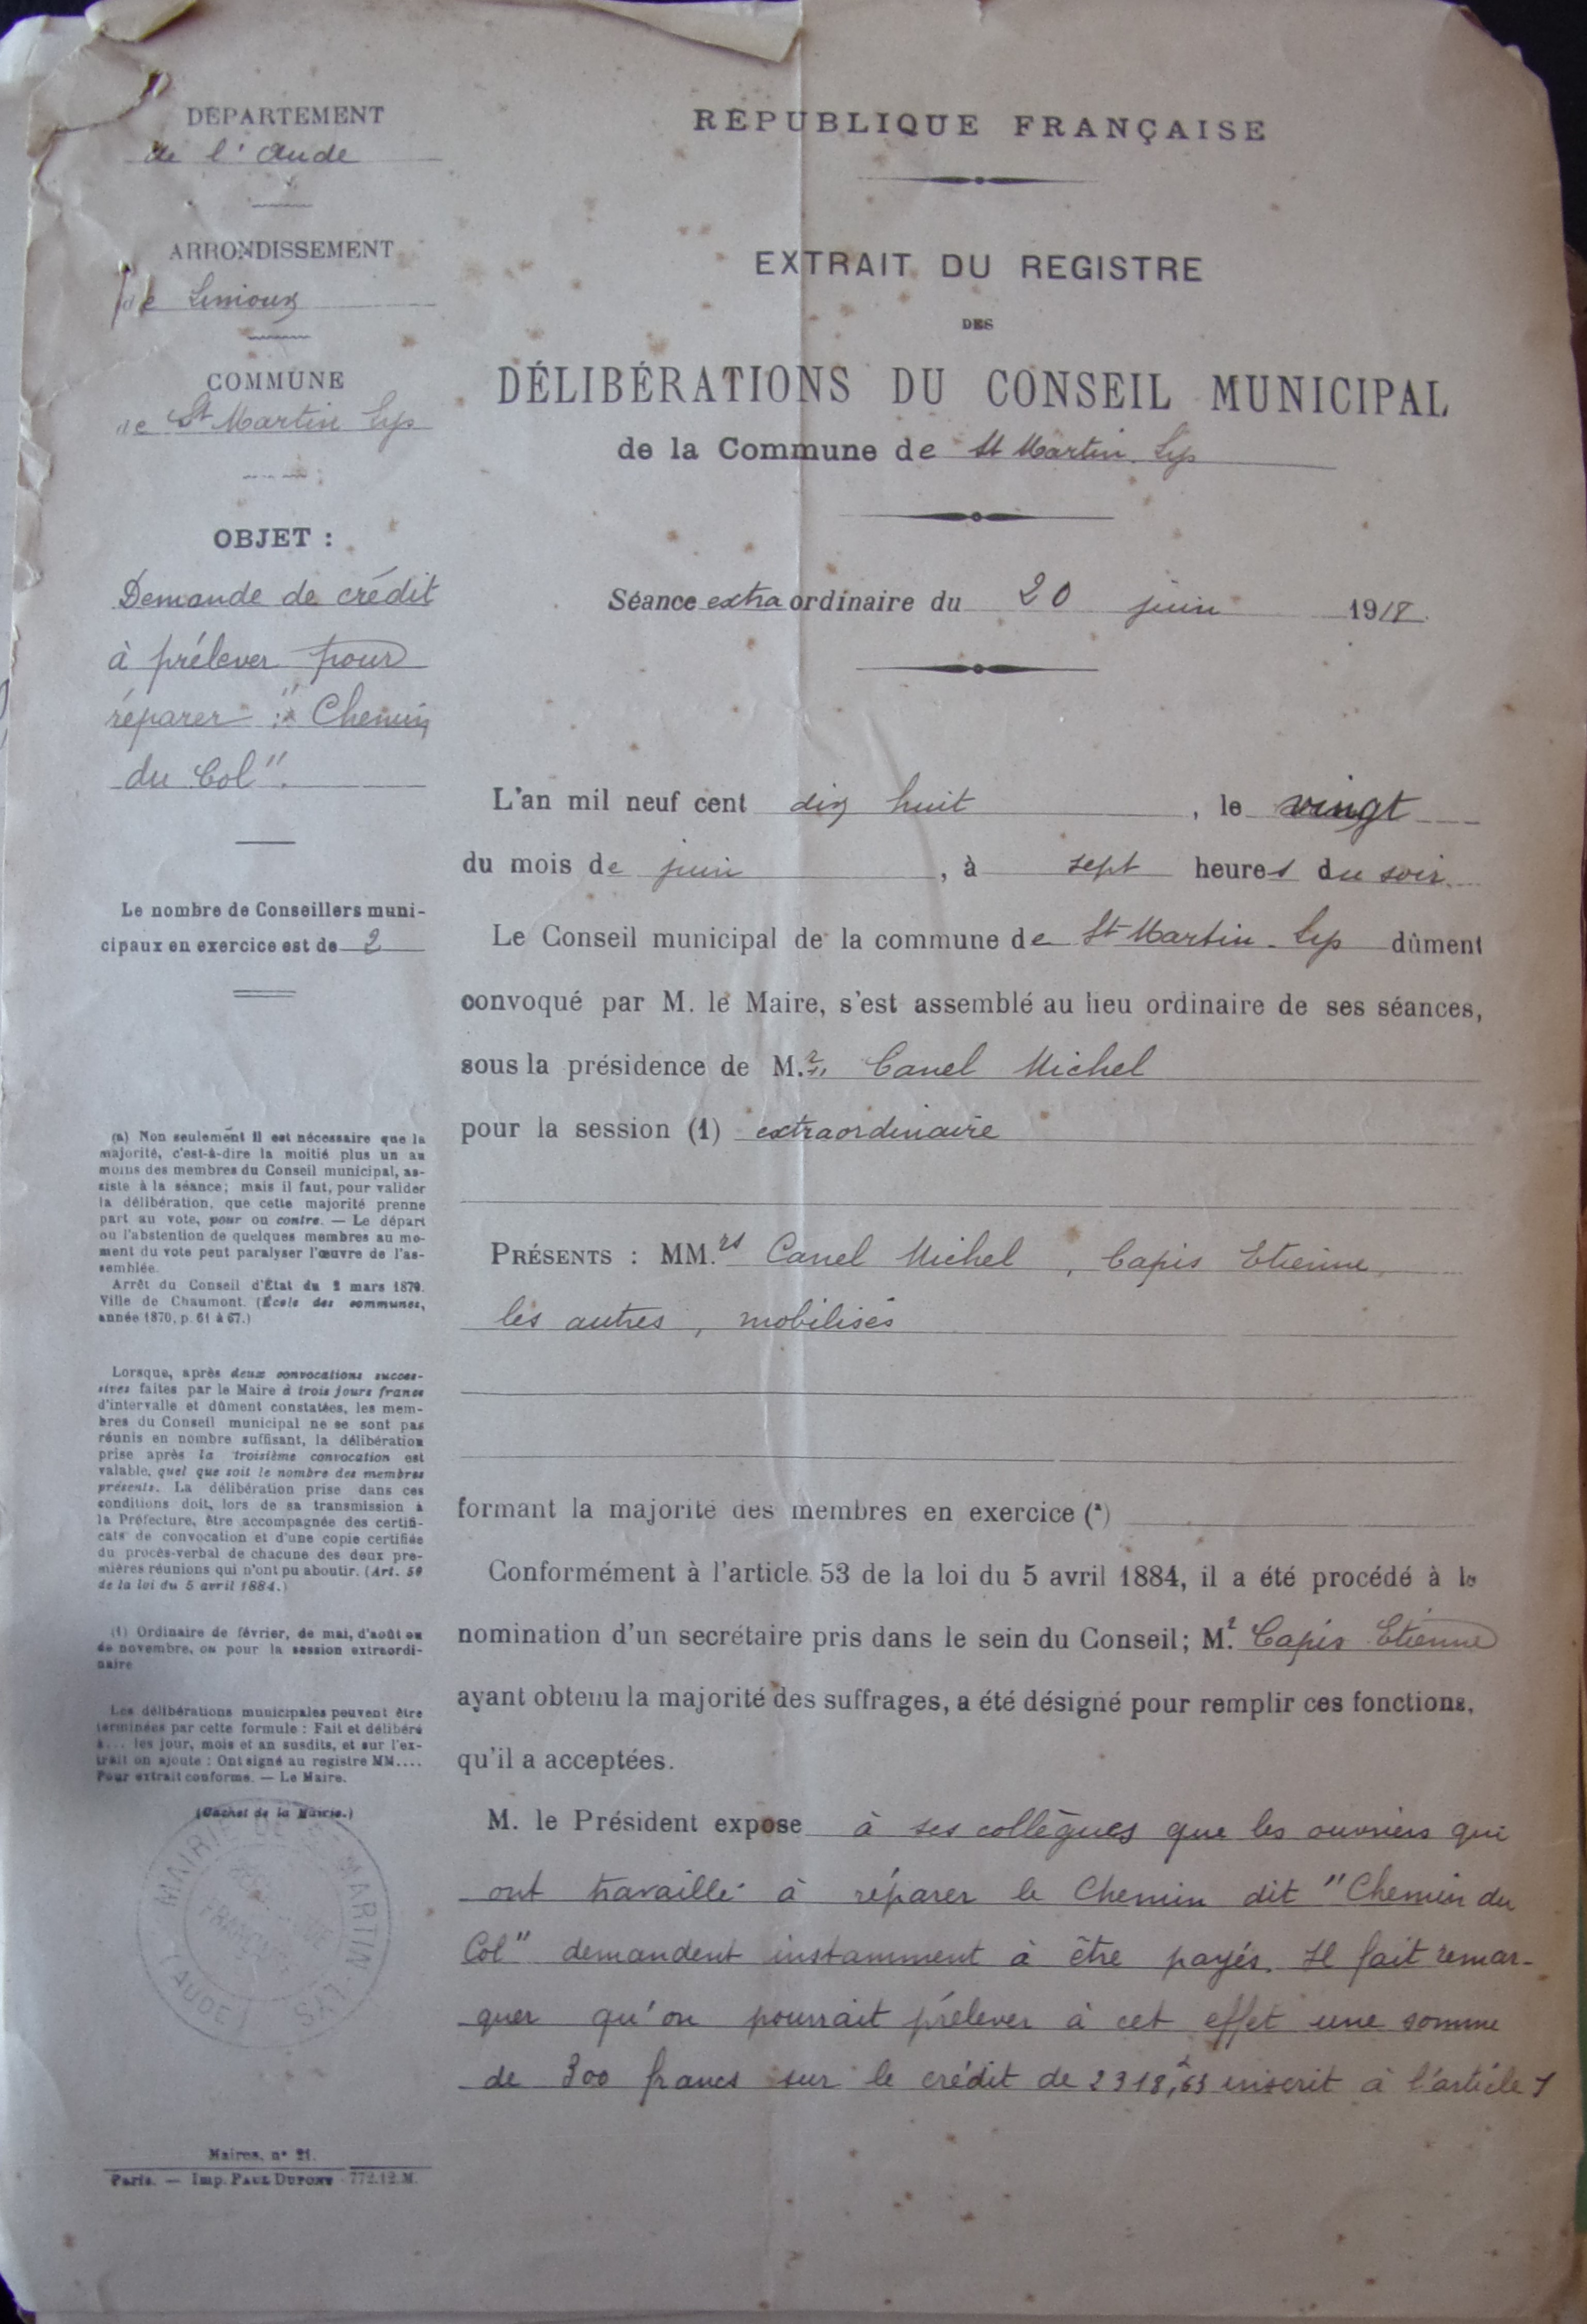 DÉPARTEMENT
de l'Aude
ARRONDISSEMENT
de Limoux
COMMUNE
de St Martin Lys
OBJET :
Demande de crédit
à prélever pour
réparer : "Chemin
du Col".
Le nombre de Conseillers muni-
cipaux en exercice est de 2
(a) Non seulement il est nécessaire que la
majorité, c'est-à-dire la moitié plus un au
moins des membres du Conseil municipal, as-
siste à la séance; mais il faut, pour valider
la délibération, que cette majorité prenne
part au vote, pour ou contre. — Le départ
ou l'abstention de quelques membres au mo-
ment du vote peut paralyser l'œuvre de l'as-
semblée.
Arrêt du Conseil d'État du 2 mars 1870.
Ville de Chaumont. (École des communes,
année 1870, p. 61 à 67.)
Lorsque, après deux convocations succes-
sives faites par le Maire à trois jours francs
d'intervalle et dûment constatées, les mem-
bres du Conseil municipal ne se sont pas
réunis en nombre suffisant, la délibération
prise après la troisième convocation est
valable, quel que soit le nombre des membres
présents. La délibération prise dans ces
conditions doit, lors de sa transmission à
la Préfecture, être accompagnée des certifi-
cats de convocation et d'une copie certifiée
du procès-verbal de chacune des deux pre-
mières réunions qui n'ont pu aboutir. (Art. 50
de la loi du 5 avril 1884.)
(1) Ordinaire de février, de mai, d'août ou
de novembre, ou pour la session extraordi-
naire
Les délibérations municipales peuvent être
terminées par cette formule : Fait et délibéré
à... les jour, mois et an susdits, et sur l'ex-
trait on ajoute : Ont signé au registre MM....
Pour extrait conforme. — Le Maire.
(Cachet de la Mairie.)
MAIRIE DE ST MARTIN-LYS
RÉPUBLIQUE
FRANÇAISE
(AUDE)
Maires, n° 21.
Paris. — Imp. PAUL DUPONT 772.12.M.
RÉPUBLIQUE FRANÇAISE
EXTRAIT DU REGISTRE
DES
DÉLIBÉRATIONS DU CONSEIL MUNICIPAL
de la Commune de St Martin. Lys
Séance extraordinaire du 20 juin 1918.
L'an mil neuf cent dix huit, le vingt
du mois de juin, à sept heures du soir.
Le Conseil municipal de la commune de St Martin-Lys dûment
convoqué par M. le Maire, s'est assemblé au lieu ordinaire de ses séances,
sous la présidence de M.r Canel Michel
pour la session (1) extraordinaire
PRÉSENTS : MM.rs Canel Michel, Capis Etienne,
les autres, mobilisés
formant la majorité des membres en exercice (a)
Conformément à l'article 53 de la loi du 5 avril 1884, il a été procédé à la
nomination d'un secrétaire pris dans le sein du Conseil; M.r Capis Etienne
ayant obtenu la majorité des suffrages, a été désigné pour remplir ces fonctions,
qu'il a acceptées.
M. le Président expose à ses collègues que les ouvriers qui
ont travaillé à réparer le Chemin dit "Chemin du
Col" demandent instamment à être payés. Il fait remar-
quer qu'on pourrait prélever à cet effet une somme
de 300 francs sur le crédit de 2318,f63 inscrit à l'article 7